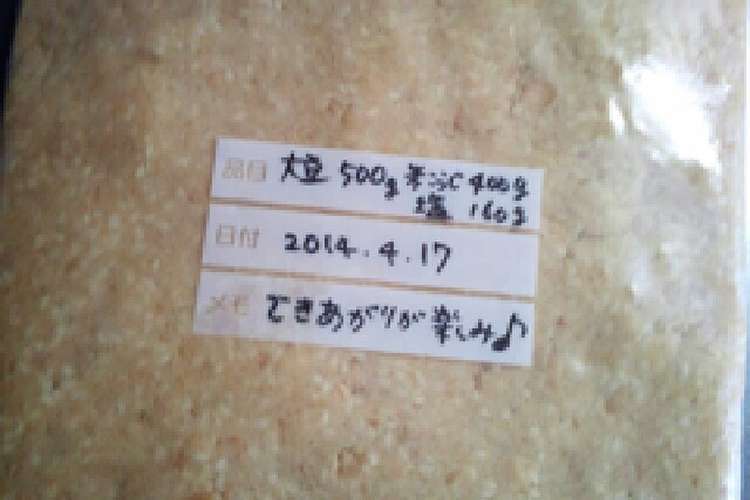 品目 大豆 500g 米こうじ 400g
塩 160g
日付 2014.4.17
メモ できあがりが楽しみ♪